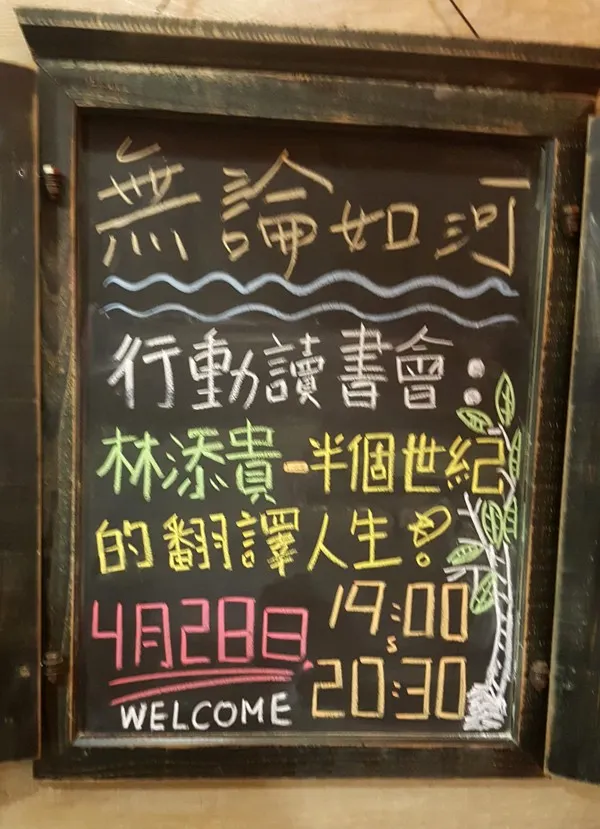 無論如河
行動讀書會：
林添貴-半個世紀
的翻譯人生！
4月28日
19:00
s
20:30
WELCOME